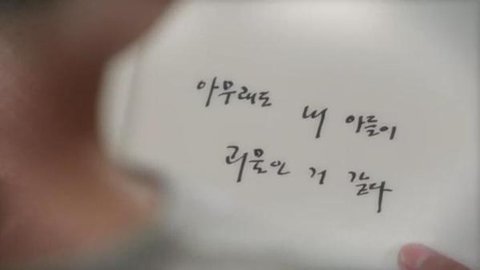 아무래도 내 아들이
괴물인 거 같다